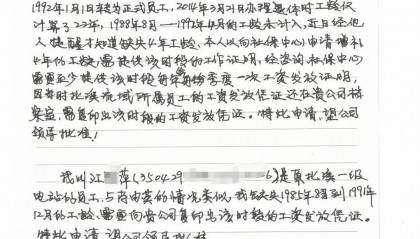 1992年1月1日转为正式员工，2014年3月21日办理退休时工龄仅
计算了22年，1988年8月——1992年4月的工龄未计入，近日经他
人提醒才知道缺失4年工龄。本人欲向社保中心申请增补
4年的工龄，需提供该时段的工作证明，经咨询社保中心
需要至少提供该时段每年每份季度一次工资发放证明，
因当时北溪流域所属员工的工资发放凭证还在贵公司档
案室，需复印出该时段的工资发放凭证。特此申请，望公司
领导批准！
我叫江 萍（350429 6）是原北溪一级
电站的员工，与肖由英的情况类似，我缺失1985年8月到1991年
12月的工龄，需要向贵公司复印出该时段的工资发放凭证。
特此申请，望公司领导批准